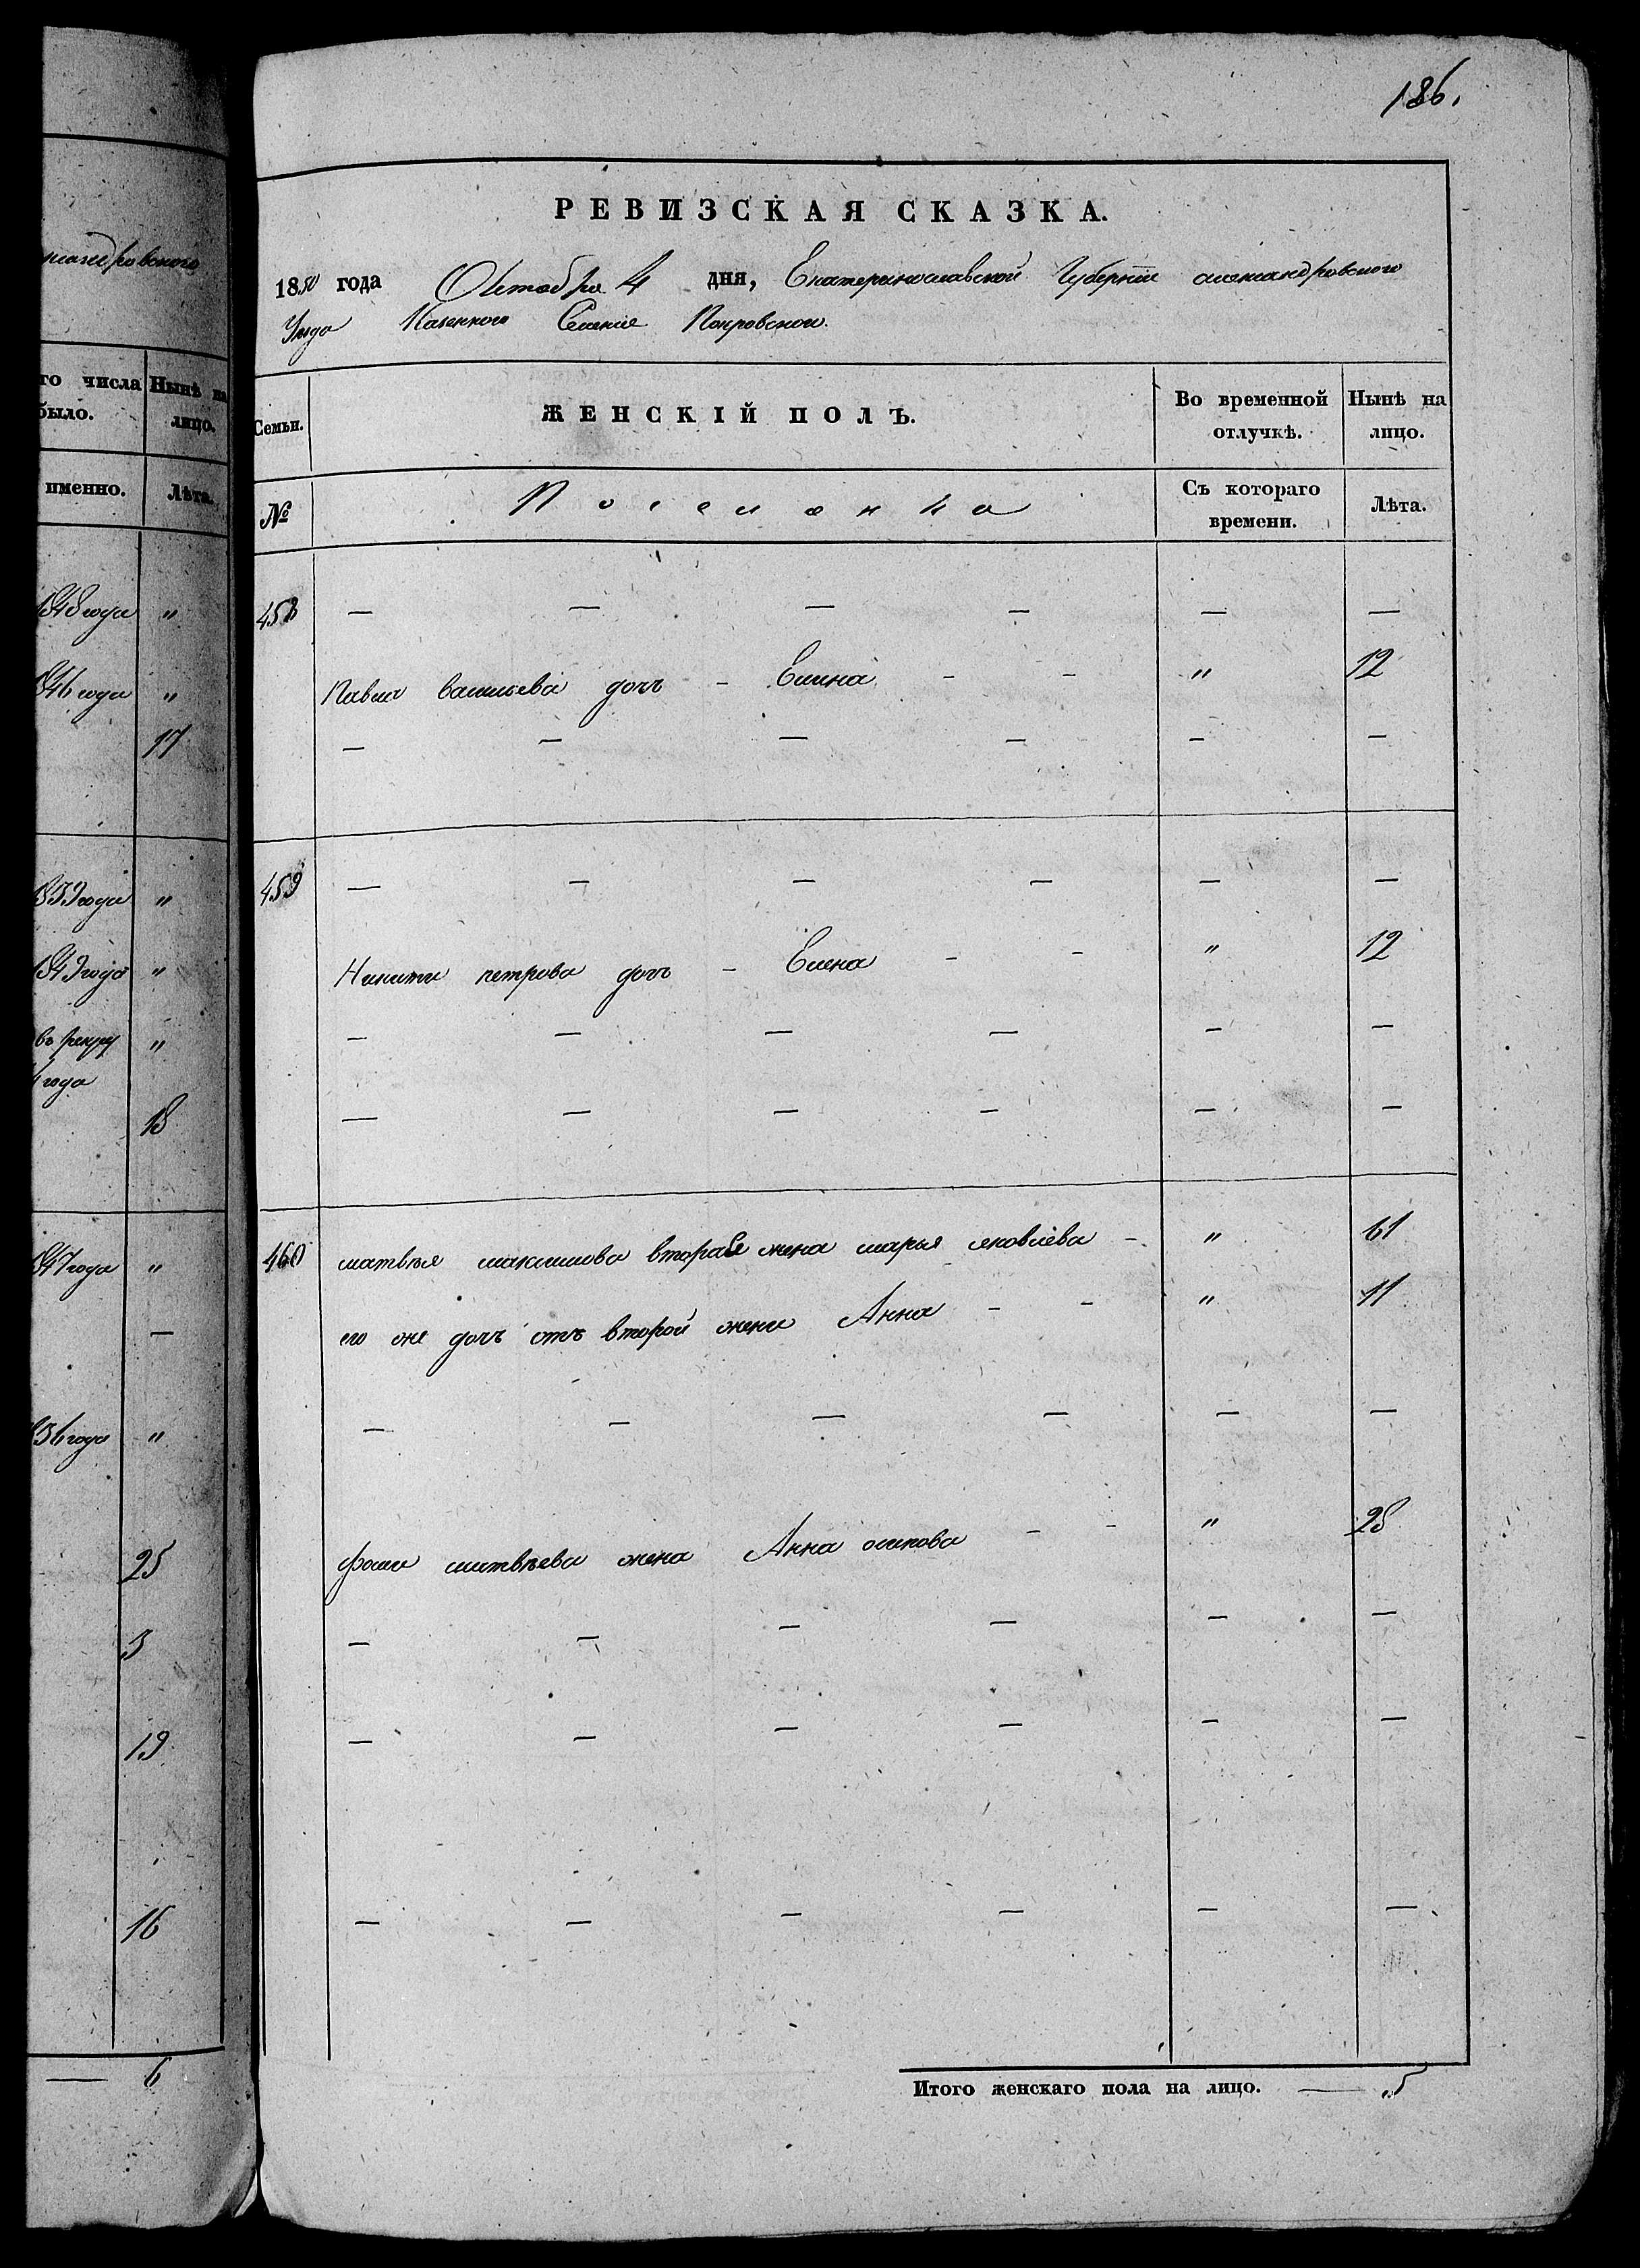 186.
РЕВИЗСКАЯ СКАЗКА.
1850 года Октября 4 дня, Екатеринославской Губерніи александровского
Уезда Казенного Селенія Покровского
ЖЕНСКІЙ ПОЛЪ.
Во временной отлучкѣ.
Нынѣ на лицо.
Семьи.
№
Поселянка
Съ котораго времени.
Лѣта.
458 — — — — — —
Павла васильева дочь - Елена - - " 12
— — — — — —
459 — — — — — —
Никиты петрова дочь - Елена - - " 12
— — — — — —
— — — — — —
460 матвѣя максимова вторая жена марья яковлева - " 61
его же дочь отъ второй жены Анна - - " 11
— — — — — —
фомы матвѣева жена Анна осипова - - " 25
— — — — — —
— — — — — —
— — — — — —
Итого женскаго пола на лицо. — 5
го числа было.
Нынѣ на лицо.
именно.
Лѣта.
1848 года "
1846 года "
17
1839 года "
1849 года "
въ рекру "
года
18
1847 года "
—
1836 года "
25
3
19
16
— 6